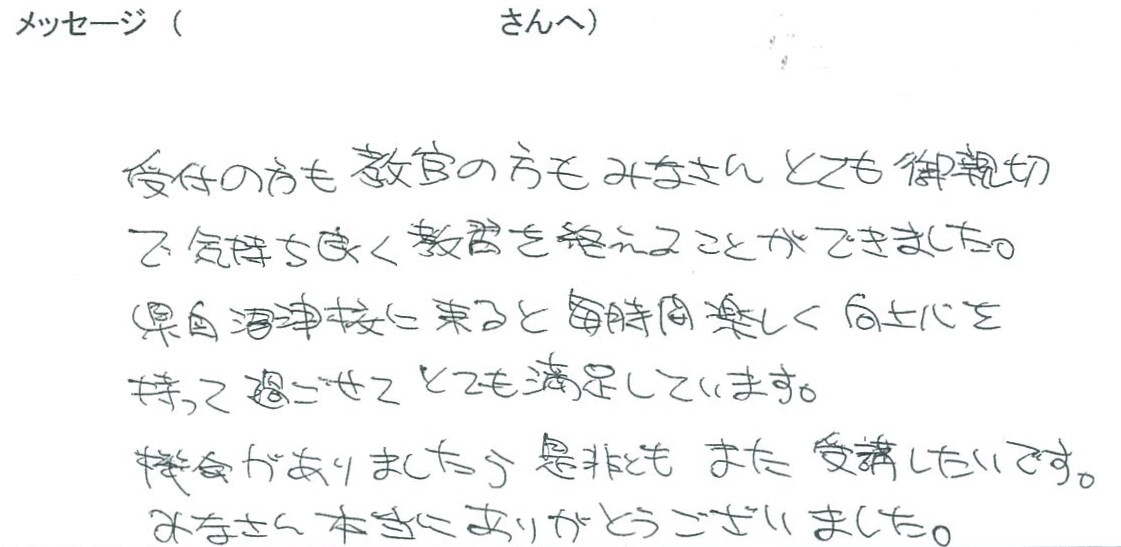 メッセージ（　　　　　　　　さんへ）
受付の方も教官の方もみなさんとても御親切
で気持ち良く教習を終えることができました。
県自沼津校に来ると毎時間楽しく向上心を
持って過ごせてとても満足しています。
機会がありましたら是非ともまた受講したいです。
みなさん本当にありがとうございました。